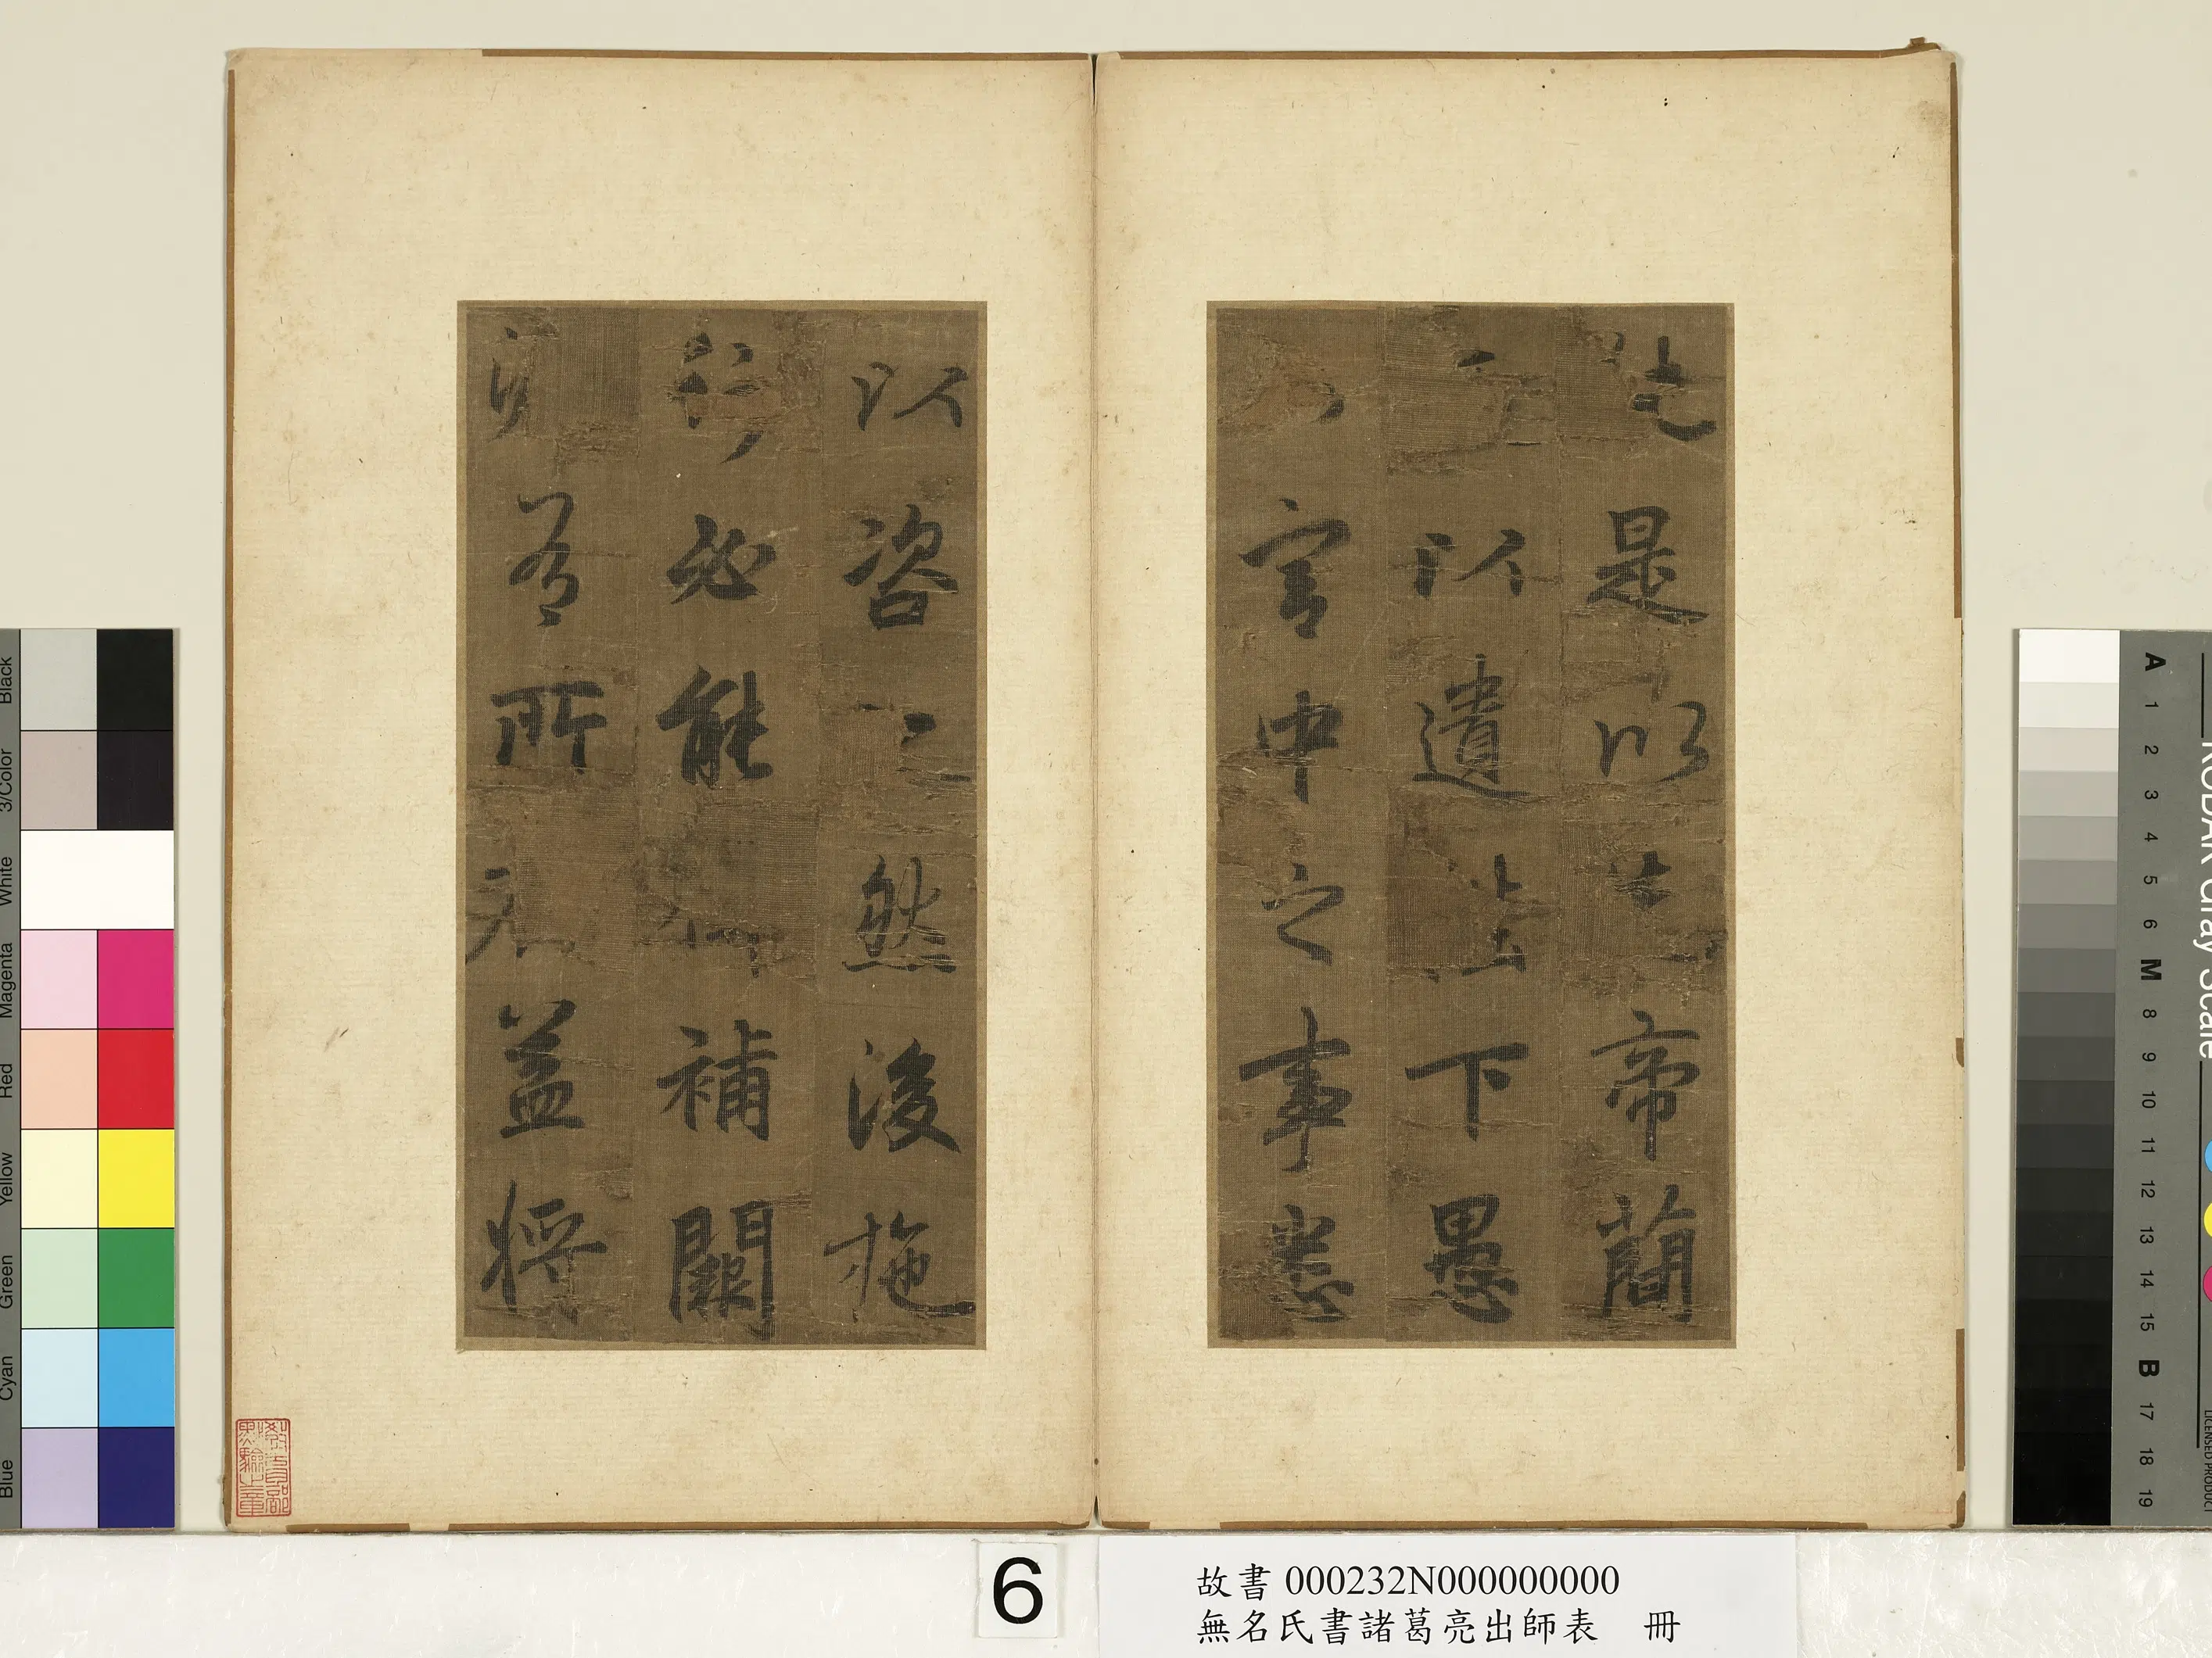 是以 帝簡
以遺 下愚
宫中之事悉
以咨 然後施
行必能 補闕
有所 益將
6
故書 000232N000000000
無名氏書諸葛亮出師表 冊
Black
3/Color
White
Magenta
Red
Yellow
Green
Cyan
Blue
KODAK Gray Scale
A 1 2 3 4 5 6 M 8 9 10 11 12 13 14 15 B 17 18 19
LICENSED PRODUCT